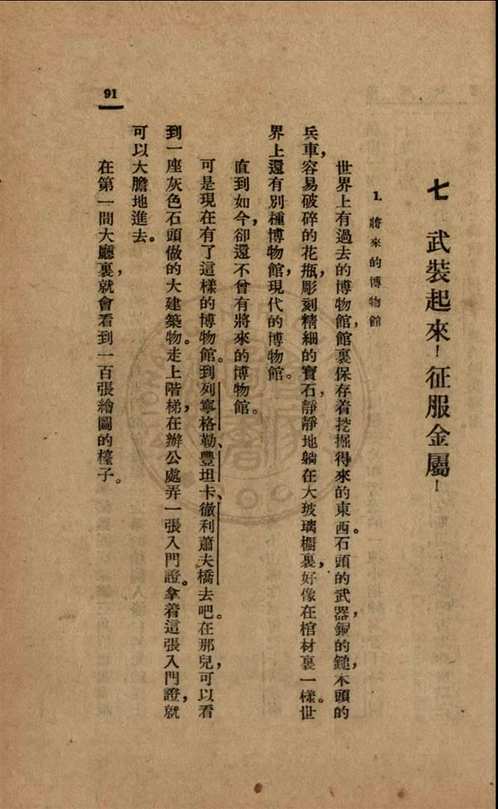 七　武裝起來！征服金屬！
1. 將來的博物館
世界上有過去的博物館，館裏保存着挖掘得來的東西。石頭的武器，銅的鎚，木頭的
兵車，容易破碎的花瓶，彫刻精細的寶石，靜靜地躺在大玻璃櫥裏，好像在棺材裏一樣。世
界上還有別種博物館，現代的博物館。
直到如今，卻還不曾有將來的博物館。
可是現在有了這樣的博物館。到列寧格勒、豐坦卡、徹利蕭夫橋去吧。在那兒，可以看
到一座灰色石頭做的大建築物。走上階梯，在辦公處弄一張入門證。拿着這張入門證，就
可以大膽地進去。
在第一間大廳裏，就會看到一百張繪圖的檯子。
91